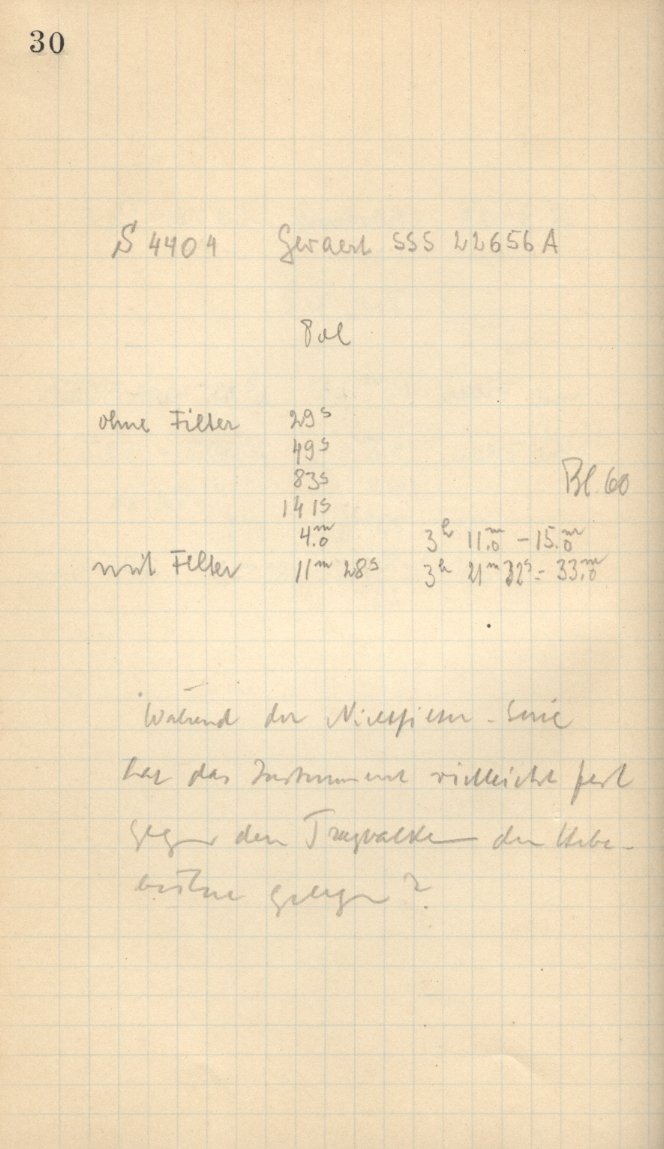 30
S 4404 Gevaert SSS 22656A
Pol
ohne Filter 29s
49s
83s
Bl. 60
141s
4.m0 3h 11.m0 - 15.m0
mit Filter 11m 28s 3h 21m 32s - 33.m0
Während der Nichtfilter-Serie
hat das Instrument vielleicht fest
gegen den Tragbalken der Hebe-
bühne gelegen?